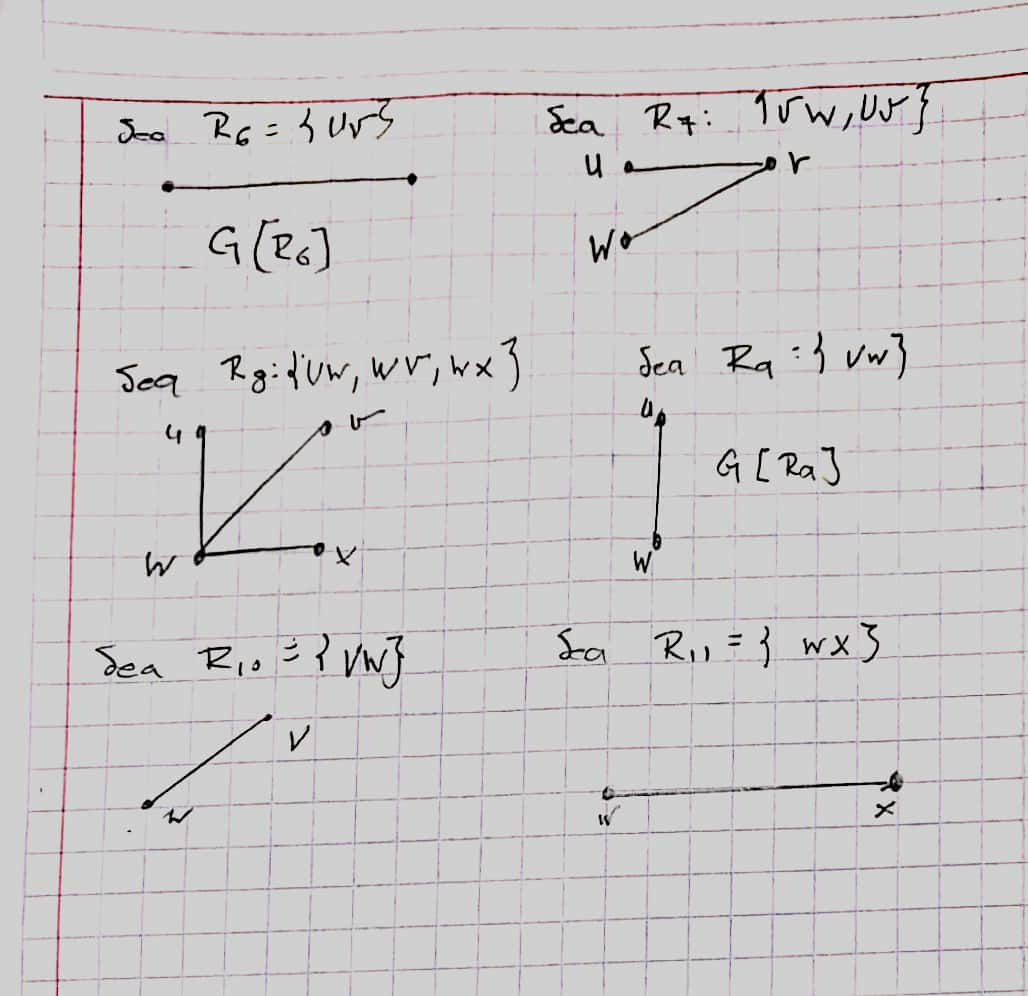 Sea R6 = {Uv}
G[R6]
Sea R7: {vw, Uv}
u v
w
Sea R8: {Uw, wv, wx}
u v
w x
Sea R9 = {Uw}
u
G[R9]
w
Sea R10 = {vw}
v
w
Sea R11 = { wx}
w x